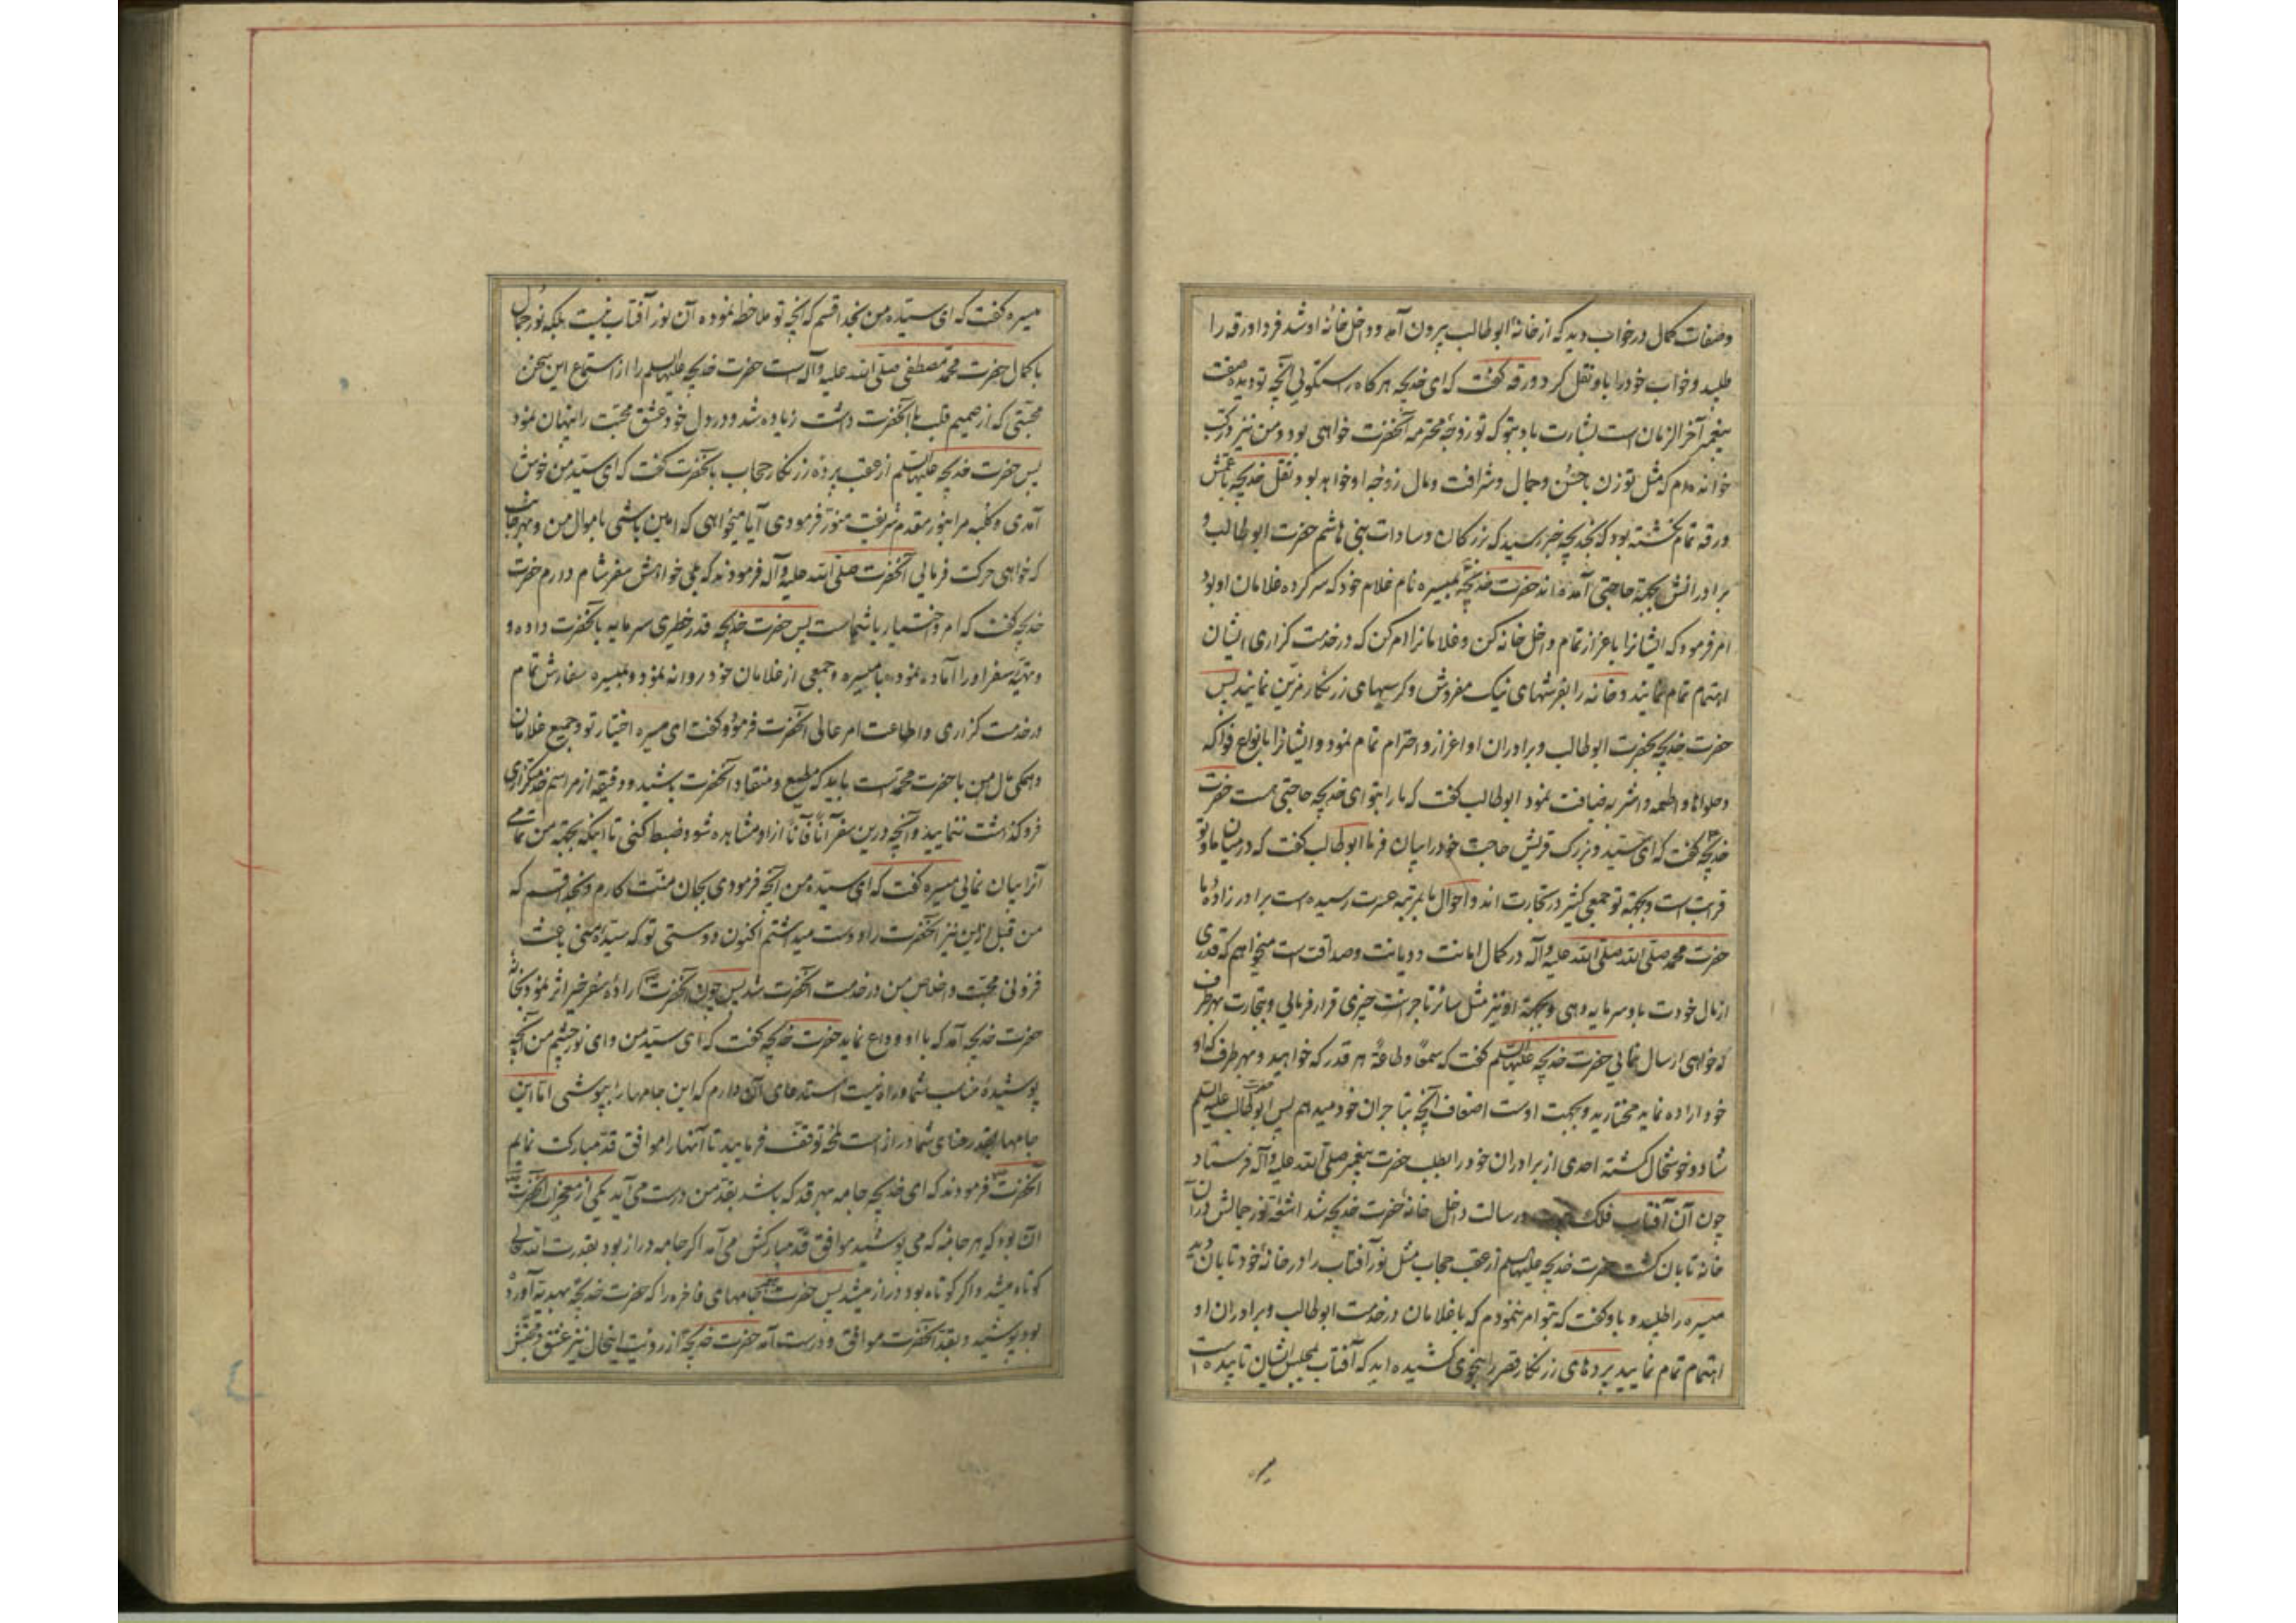 وصفات کمال در خواب دید که از خانهٔ ابوطالب بیرون آمد و داخل خانه او شد فردا ورقه را
طلبید و خواب خود را باو نقل کرد ورقه گفت که ای خدیجه هرگاه راست گوئی آنچه تو دیدهٔ صفت
پیغمبر آخر الزمان است بشارت باد بتو که تو زوجهٔ محترمه آنحضرت خواهی بود و من نیز در کتب
خوانده‌ام که مثل تو زن باحسن و جمال و شرافت و مال زوجه او خواهد بود نقل خدیجه با عمش
ورقه تمام نگشته بود که بخدیجه خبر رسید که بزرگان و سادات بنی هاشم حضرت ابوطالب و
برادرانش بجهة حاجتی آمده‌اند حضرت خدیجه بمیسره نام غلام خود که سرکرده غلامان او بود
امر فرمود که ایشانرا باعزاز تمام داخل خانه کن و غلامانرا امر کن که در خدمت گزاری ایشان
اهتمام تمام نمایند و خانه را بفرشهای نیک مفروش و کرسیهای زرنگار مزین نمایند پس
حضرت خدیجه بحضرت ابوطالب و برادران او اعزاز و احترام تمام نمود و ایشانرا بانواع فواکه
و حلواها و اطعمه و اشربه ضیافت نمود ابوطالب گفت که ما را بتو ای خدیجه حاجتی هست حضرت
خدیجه گفت که ای سید و بزرگ قریش حاجت خود را بیان فرما ابوطالب گفت که در میان ما و تو
قرابت است و بجهة تو جمعی کثیر در تجارت اند و احوال ما بمرتبه عسرت رسیده است برادر زادهٔ ما
حضرت محمد صلی الله صلی الله علیه و آله در کمال امانت و دیانت و صداقت است میخواهم که قدری
از مال خودت باو سرمایه دهی و بجهة او نیز مثل سائر تاجرانت چیزی قرار فرمائی و بتجارت بهر طرف
که خواهی ارسال نمائی حضرت خدیجه علیها السلم گفت که سمعا و طاعة هر قدر که خواهید و بهر طرف که او
خود اراده نماید مختارید و بجهت اوست اضعاف آنچه بتاجران خود میدهم پس حضرت ابوطالب علیه السلم
شاد و خوشحال گشته احدی از برادران خود را بطلب حضرت پیغمبر صلی الله علیه و آله فرستاد
چون آن آفتاب فلک و رسالت داخل خانهٔ حضرت خدیجه شد اشعهٔ نور جمالش در آن
خانه تابان گشت حضرت خدیجه علیها السلم از عقب حجاب مثل نور آفتاب را در خانهٔ خود تابان دید
میسره را طلبید و باو گفت که بتو امر ننمودم که با غلامان در خدمت ابوطالب و برادران او
اهتمام تمام نمایید پردهای زرنگار قصر را بنحوی کشیده‌اید که آفتاب بمجلس ایشان تابیده است
میسره
میسره گفت که ای سیدهٔ من بخدا قسم که آنچه تو ملاحظه نموده آن نور آفتاب نیست بلکه نور جمال
با کمال حضرت محمد مصطفی صلی الله علیه و آله است حضرت خدیجه علیها السلم را از استماع این سخن
محبتی که از صمیم قلب با آنحضرت داشت زیاده شد و در دل خود عشق محبت را پنهان نمود
پس حضرت خدیجه علیها السلم از عقب پردهٔ زرنگار حجاب بآنحضرت گفت که ای سید من خوش
آمدی و کلبه مرا بنور مقدم شریفت منور فرمودی آیا میخواهی که امین باشی باموال من و بهر جانب
که خواهی حرکت فرمائی آنحضرت صلی الله علیه و آله فرمودند که بلی خواهش سفر شام دارم حضرت
خدیجه گفت که امر و اختیار با شماست پس حضرت خدیجه قدر خطیری سرمایه بآنحضرت داده و
و تهیهٔ سفر او را آماده نموده با میسره و جمعی از غلامان خود روانه نمود و بمیسره سفارش تمام
در خدمت گزاری و اطاعت امر عالی آنحضرت فرمود و گفت ای میسره اختیار تو و جمیع غلامان
و همگی مال من با حضرت محمد است باید که مطیع و منقاد آنحضرت باشید و دقیقه از مراسم خدمتگزاری
فرو گذاشت ننمایید و آنچه درین سفر آنا فآنا از او مشاهده شود ضبط کنی تا اینکه بجهة من تمامی
آنرا بیان نمائی میسره گفت که ای سیدهٔ من آنچه فرمودی بجان منت دارم و بخدا قسم که
من قبل از این نیز آنحضرت را دوست میداشتم اکنون دوستی تو که سیدهٔ منی باعث
فزونی محبت و اخلاص من در خدمت آنحضرت شد پس چون آنحضرت ارادهٔ سفر خیر اثر نمود بخانهٔ
حضرت خدیجه آمد که با او وداع نماید حضرت خدیجه گفت که ای سید من و ای نور چشم من آنچه
پوشیدهٔ مناسب شما و راه نیست استدعای آن دارم که این جامها را بپوشی اما این
جامها بقد رعنای شما دراز است لمحهٔ توقف فرمایید تا آنها را موافق قد مبارکت نمایم
آنحضرت فرمودند که ای خدیجه جامه بهر قد که باشد بقد من درست می‌آید یکی از معجزات آنحضرت
آن بود که هر جامهٔ که می‌پوشید موافق قد مبارکش می‌آمد اگر جامه دراز بود بقدرت الله تعالی
کوتاه میشد و اگر کوتاه بود دراز میشد پس حضرت جامهای فاخره را که حضرت خدیجه بهدیه آورده
بود پوشید و بقد آنحضرت موافق و درست آمد حضرت خدیجه از رؤیت اینحال نیز عشق